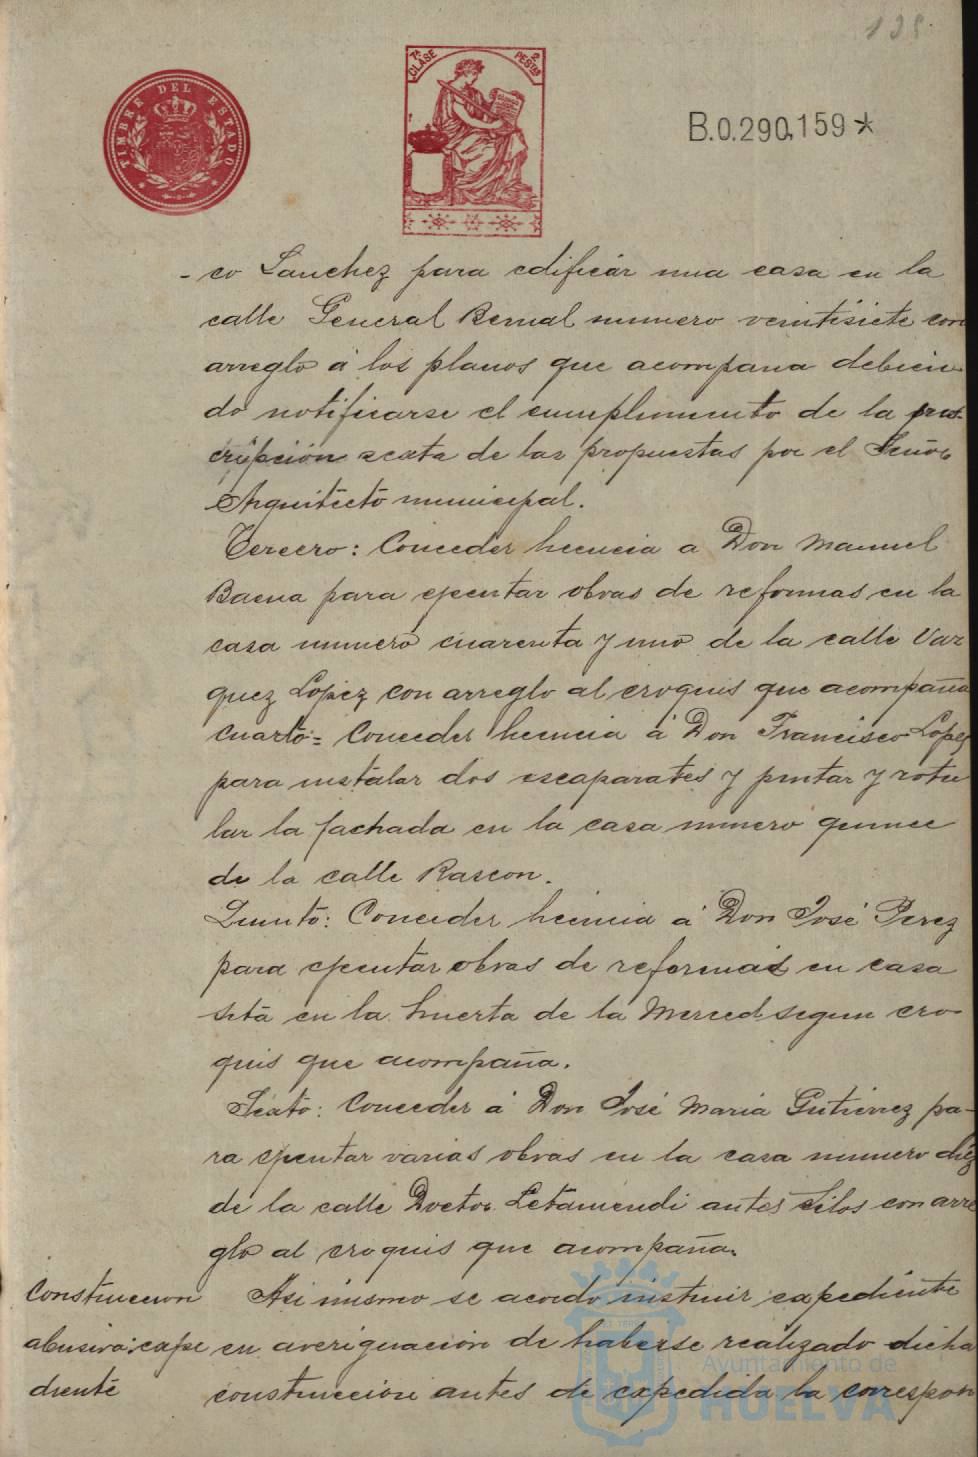 128
TIMBRE DEL ESTADO
7ª CLASE 2 PESTAS
B.0.290,159*
-co Sanchez para edificár una casa en la
calle General Bernal numero veintisiete con
arreglo á los planos que acompaña debien-
do notificarse el cumplimiento de la pres-
cripción sexta de las propuestas por el Señor
Arquitecto municipal.
Tercero: Conceder licencia a Don Manuel
Baena para ejecutar obras de reformas en la
casa numero cuarenta y uno de la calle Vaz
quez Lopez con arreglo al croquis que acompaña
Cuarto = Conceder licencia á Don Francisco Lopez
para instalar dos escaparates y pintar y rotu
lar la fachada en la casa numero quince
de la calle Rascon.
Quinto: Conceder licencia á Don José Perez
para ejecutar obras de reformas en casa
sita en la huerta de la Merced segun cro-
quis que acompaña.
Sexto: Conceder á Don José Maria Gutierrez pa-
ra ejecutar varias obras en la casa numero diez
de la calle Doctor Letamendi antes Silos con arre
glo al croquis que acompaña.
Construccion
abusiva: expe
diente
Asi mismo se acordo instruir expediente
en averiguación de haberse realizado dicha
construccion antes de expedida la correspon
Ayuntamiento de
HUELVA